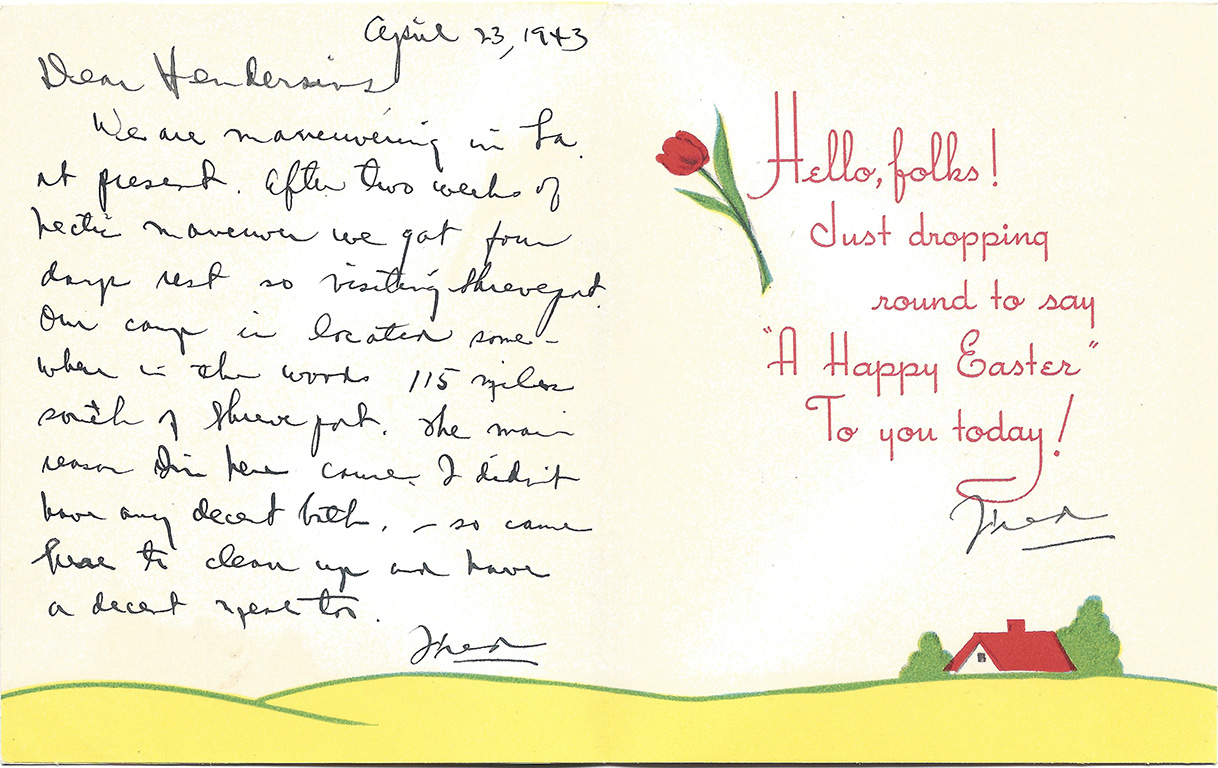 April 23, 1943
Dear Hendersons
We are maneuvering in La.
at present. After two weeks of
hectic maneuver we got four
days rest so visiting Shreveport.
Our camp is located some-
where in the woods 115 miles
south of Shreveport. The main
reason I'm here cause I didn't
have any decent bath, – so came
here to clean up and have
a decent meal too.
Fred
Hello, folks!
Just dropping
round to say
"A Happy Easter"
To you today!
Fred